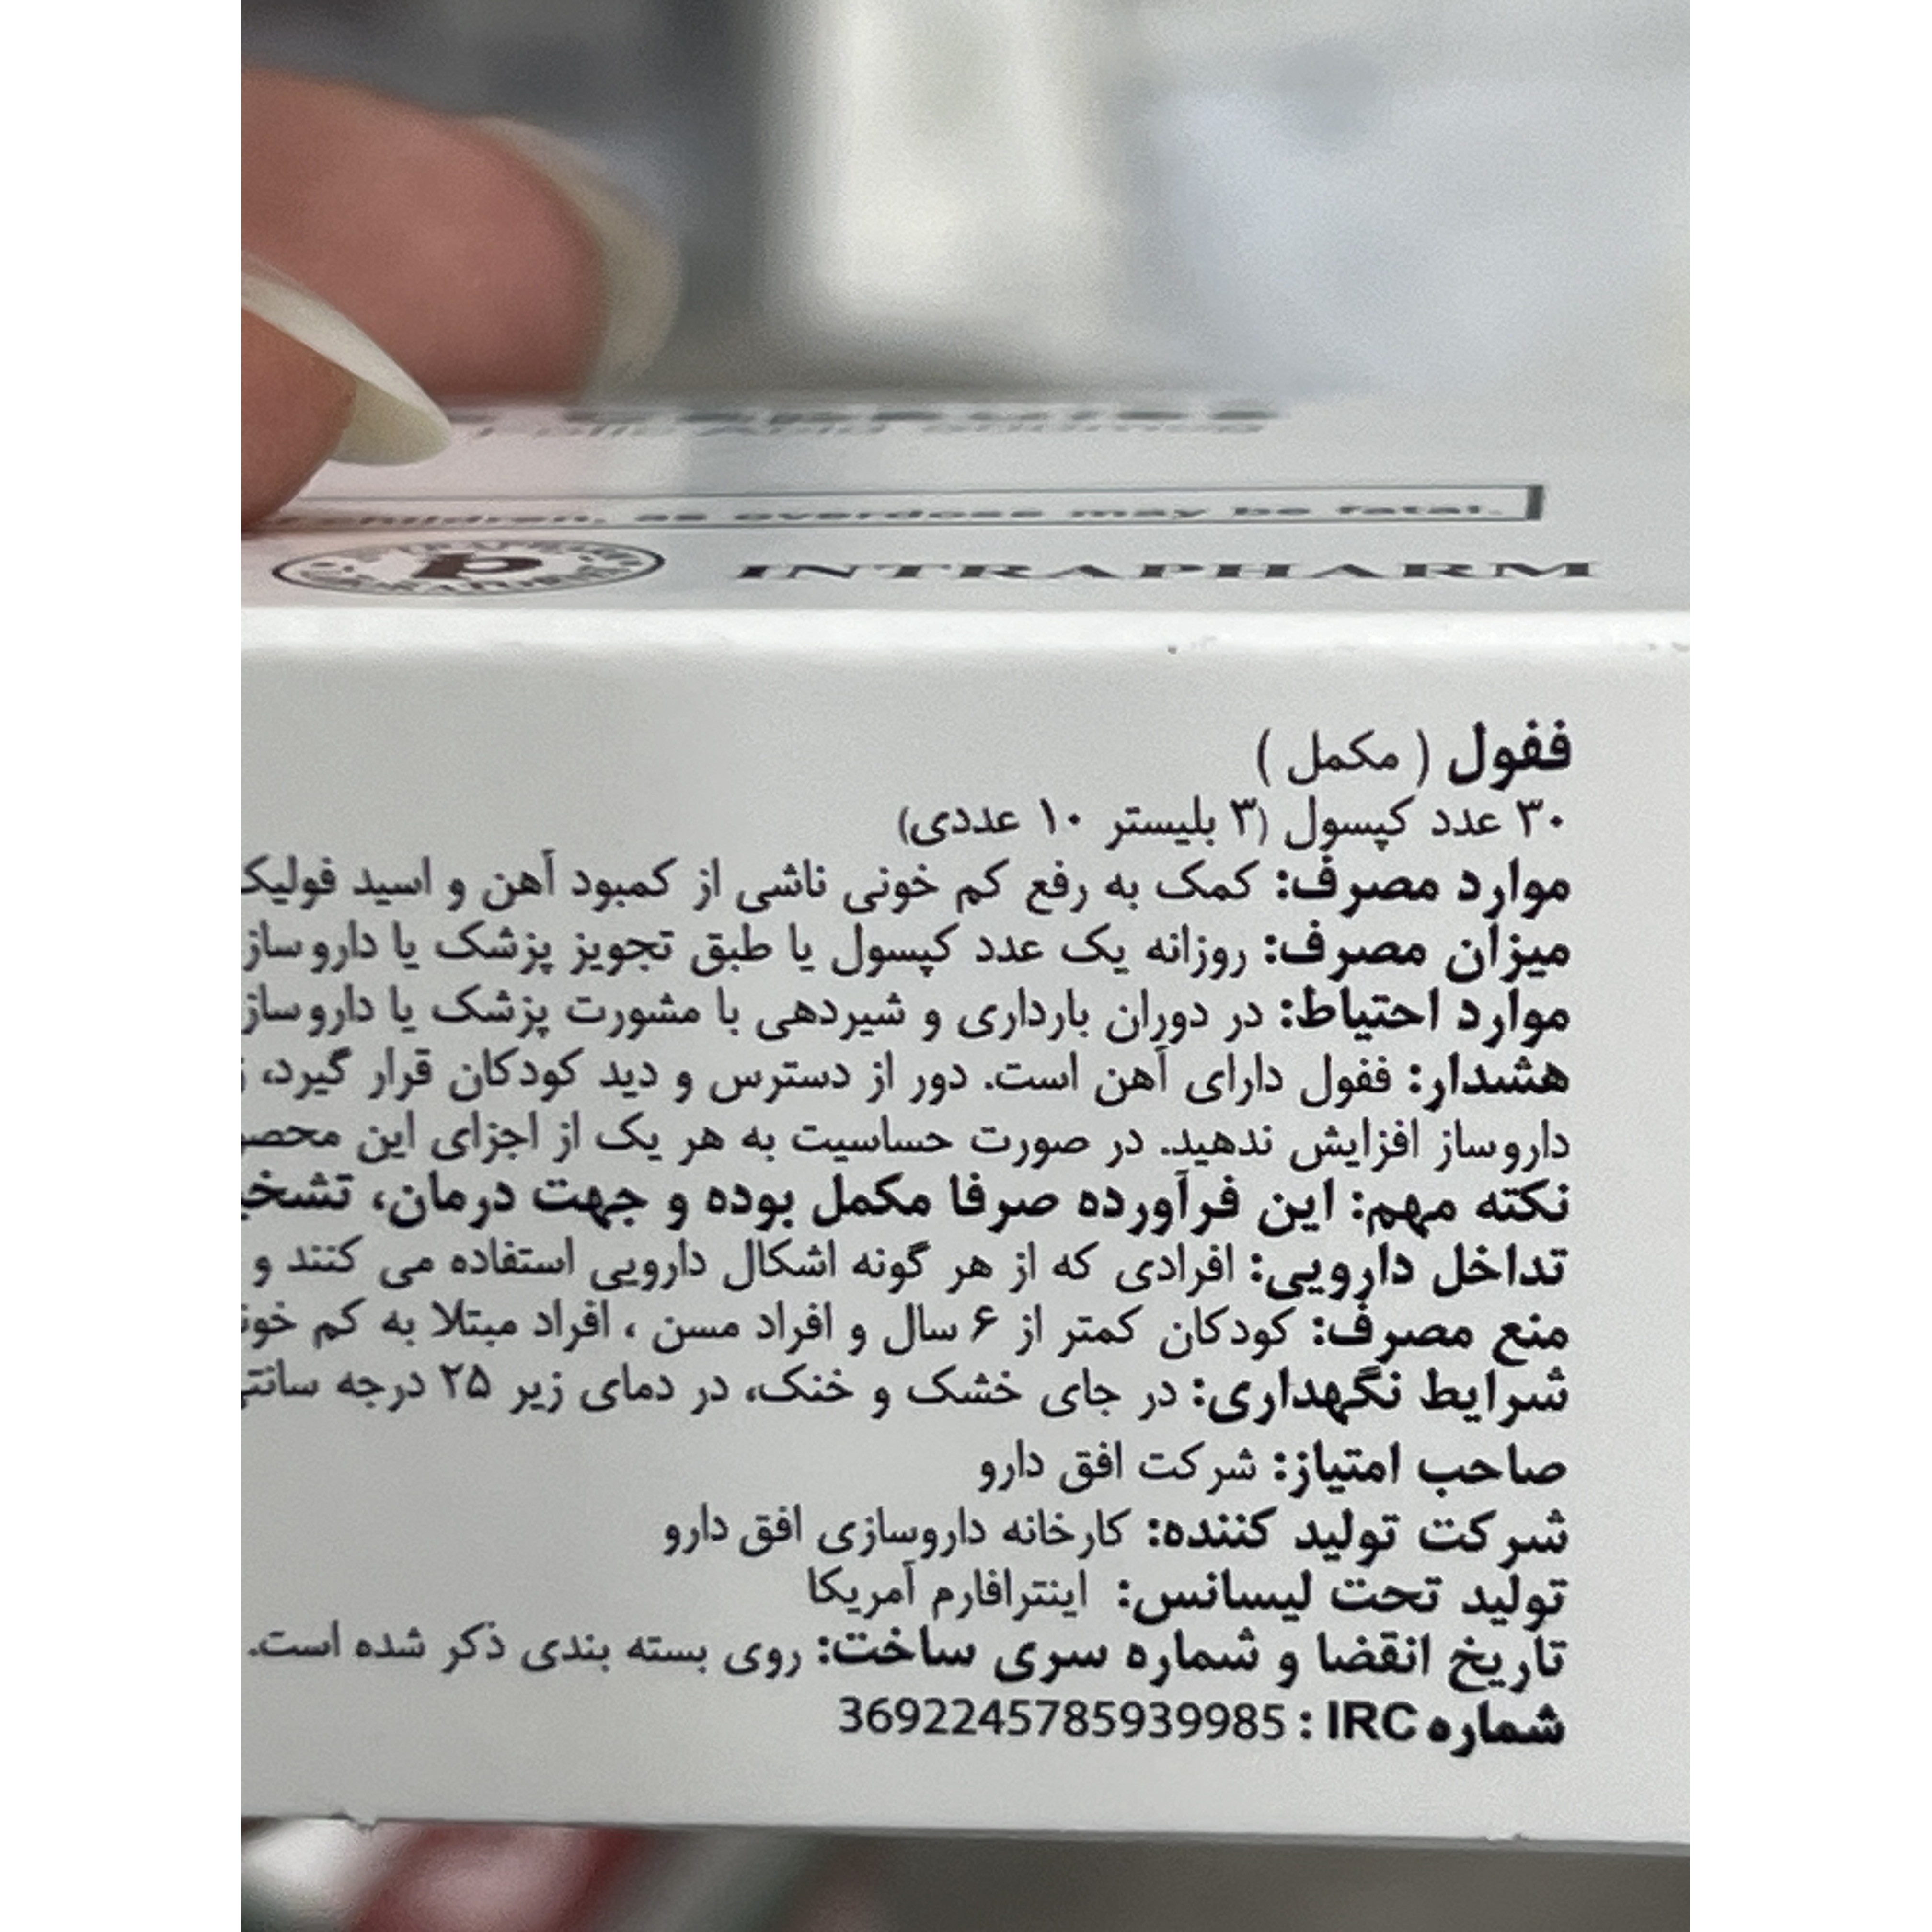 children, as overdose may be fatal.
INTRAPHARM
ففول ( مکمل )
۳۰ عدد کپسول (۳ بلیستر ۱۰ عددی)
موارد مصرف: کمک به رفع کم خونی ناشی از کمبود آهن و اسید فولیک
میزان مصرف: روزانه یک عدد کپسول یا طبق تجویز پزشک یا داروساز
موارد احتیاط: در دوران بارداری و شیردهی با مشورت پزشک یا داروساز
هشدار: ففول دارای آهن است. دور از دسترس و دید کودکان قرار گیرد،
داروساز افزایش ندهید. در صورت حساسیت به هر یک از اجزای این
نکته مهم: این فرآورده صرفا مکمل بوده و جهت درمان،
تداخل دارویی: افرادی که از هر گونه اشکال دارویی استفاده می کنند و
منع مصرف: کودکان کمتر از ۶ سال و افراد مسن ، افراد مبتلا به کم
شرایط نگهداری: در جای خشک و خنک، در دمای زیر ۲۵ درجه
صاحب امتیاز: شرکت افق دارو
شرکت تولید کننده: کارخانه داروسازی افق دارو
تولید تحت لیسانس: اینترافارم آمریکا
تاریخ انقضا و شماره سری ساخت: روی بسته بندی ذکر شده است.
شماره IRC : 3692245785939985